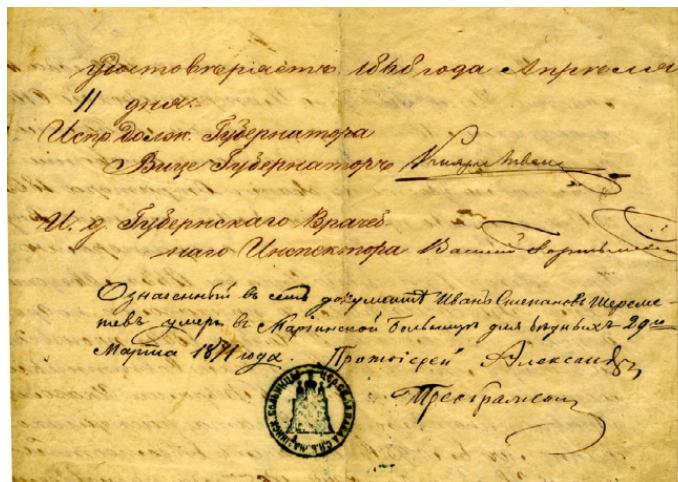 удостовѣряетъ 1868 года Апрѣля
11 дня.
Испр. Долж. Губернатора
Вице Губернаторъ
И. д. Губернскаго Врачеб
наго Инспектора Василій
Означенный въ семъ документѣ Иванъ Степановъ Шереме-
тевъ умеръ въ Маріинской больницѣ для бѣдныхъ 29го
Марта 1871 года. Протоіерей Александръ
Преображенскій